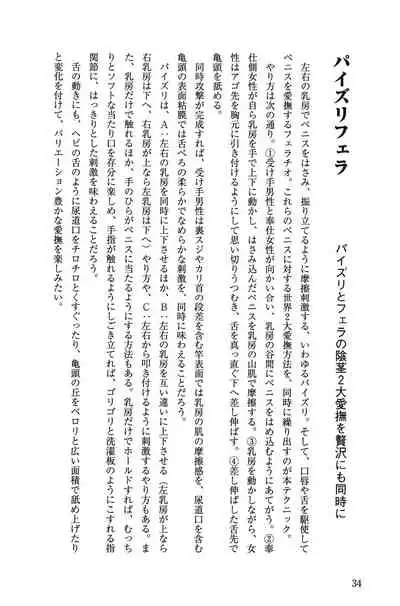 パイズリフェラ
パイズリとフェラの陰茎2大愛撫を贅沢にも同時に
左右の乳房でペニスをはさみ、振り立てるように摩擦刺激する、いわゆるパイズリ。そして、口唇や舌を駆使して
ペニスを愛撫するフェラチオ。これらのペニスに対する世界2大愛撫方法を、同時に繰り出すのが本テクニック。
やり方は次の通り。①受け手男性と奉仕女性が向かい合い、乳房の谷間にペニスをはめ込むようにあてがう。②奉
仕側女性が自ら乳房を手で上下に動かし、はさみ込んだペニスを乳房の山肌で摩擦する。③乳房を動かしながら、女
性はアゴ先を胸元に引き付けるようにして思い切りうつむき、舌を真っ直ぐ下へ差し伸ばす。④差し伸ばした舌先で
亀頭を舐める。
同時攻撃が完成すれば、受け手男性は裏スジやカリ首の段差を含む竿表面では乳房の肌の摩擦感を、尿道口を含む
亀頭の表面粘膜では舌べろの柔らかでなめらかな刺激を、同時に味わえることだろう。
パイズリは、A:左右の乳房を同時に上下させるほか、B:左右の乳房を互い違いに上下させる(左乳房が上なら
右乳房は下へ、右乳房が上なら左乳房は下へ)やり方や、C:左右から叩き付けるように刺激するやり方もある。ま
た、乳房だけで触れるほか、手のひらがペニスに当たるようにする方法もある。乳房だけでホールドすれば、むっち
りとソフトな当たり口を存分に楽しめ、手指が触れるようにしごき立てれば、ゴリゴリと洗濯板のようにこすれる指
関節に、はっきりとした刺激を味わえることだろう。
舌の動きにも、ヘビの舌のように尿道口をチロチロとくすぐったり、亀頭の丘をベロリと広い面積で舐め上げたり
と変化を付けて、バリエーション豊かな愛撫を楽しみたい。
34